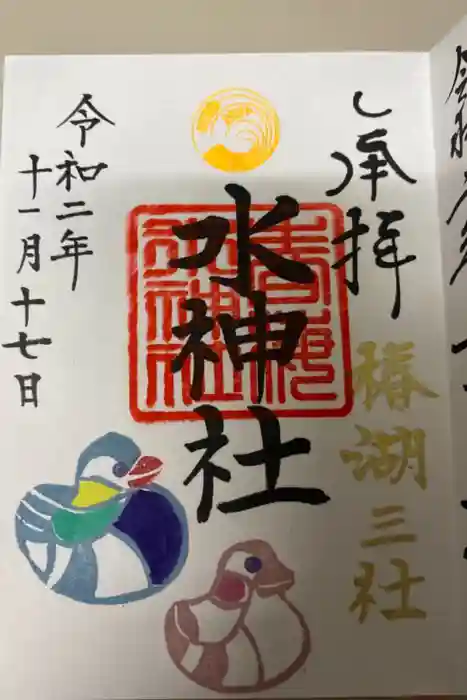 奉拝
椿湖三社
水神社
令和二年
十一月十七日